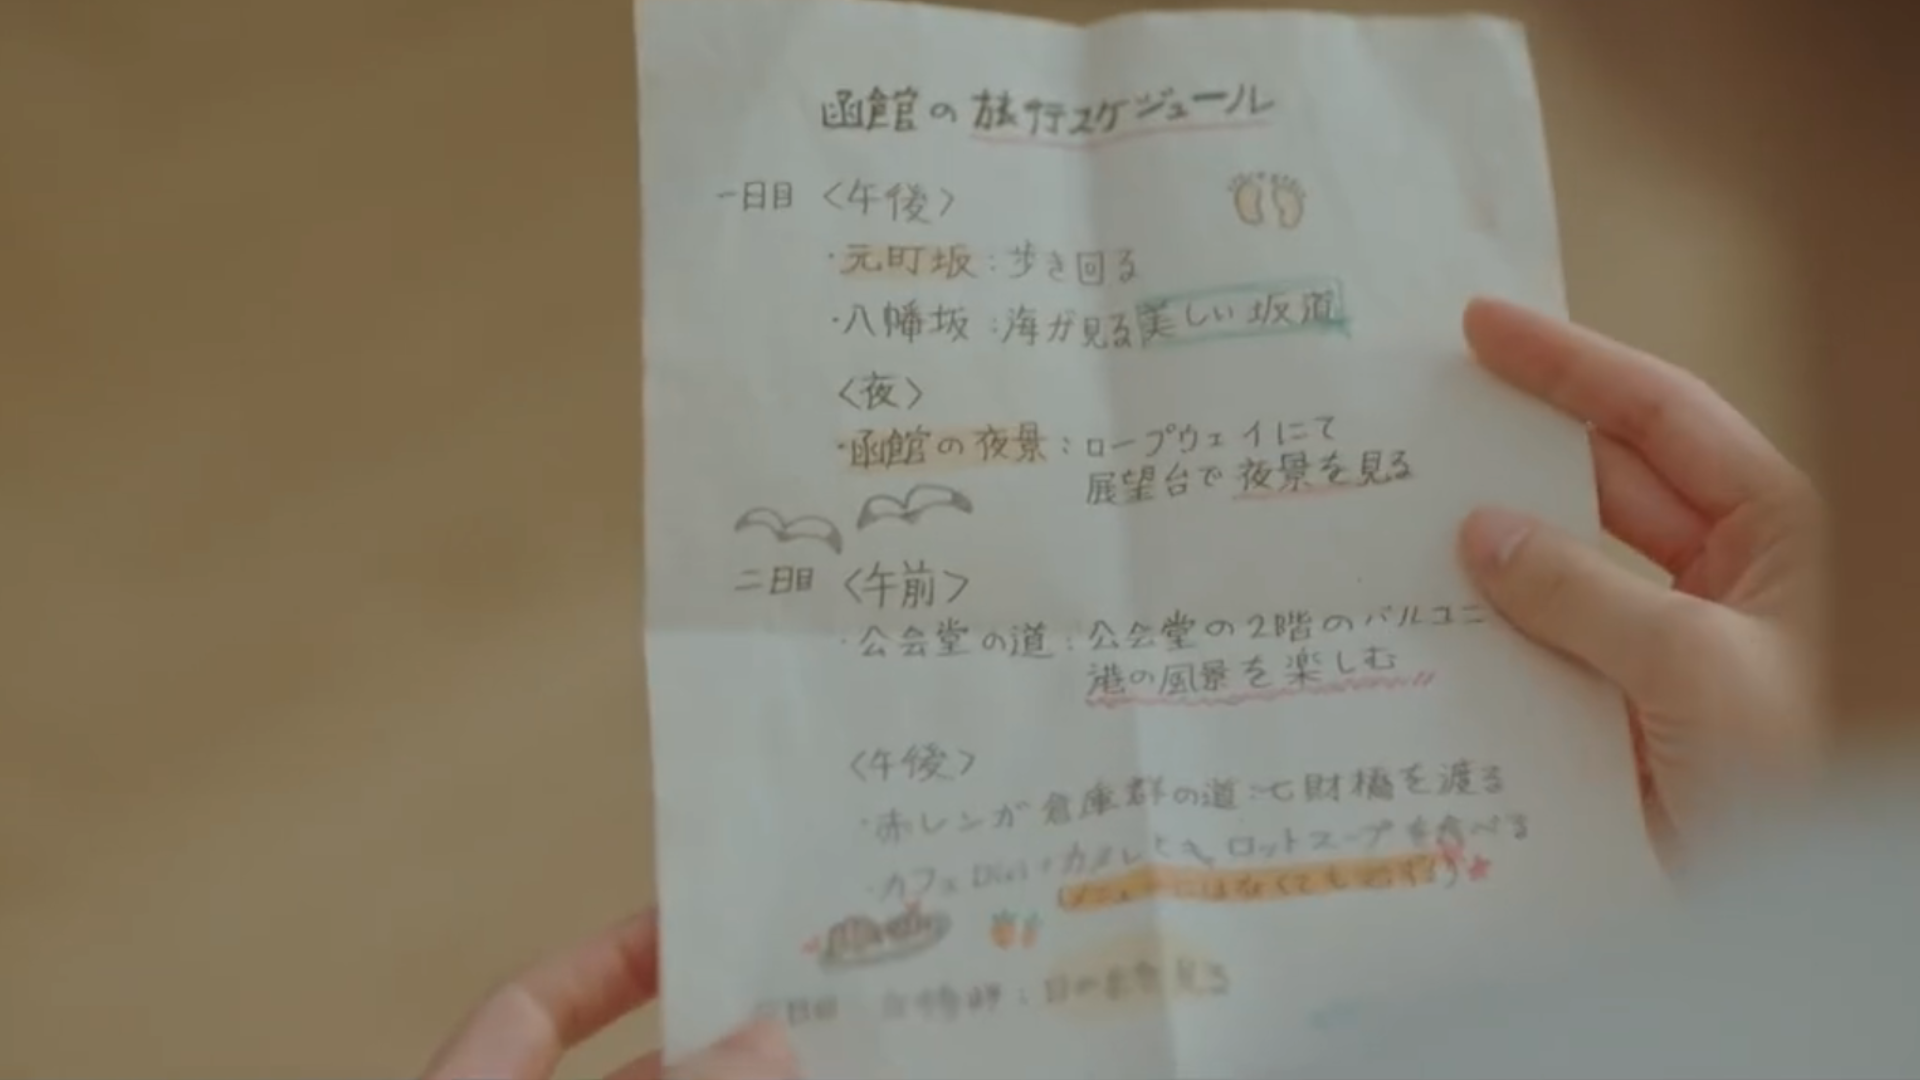 函館の旅行スケジュール
一日目 〈午後〉
・元町坂：歩き回る
・八幡坂：海が見る美しい坂道
〈夜〉
・函館の夜景：ロープウェイにて
展望台で夜景を見る
二日目 〈午前〉
・公会堂の道：公会堂の2階のバルコニ
港の風景を楽しむ
〈午後〉
・赤レンガ倉庫群の道：七財橋を渡る
・カフェ ロットスープを食べる
日目 ：日の出を見る